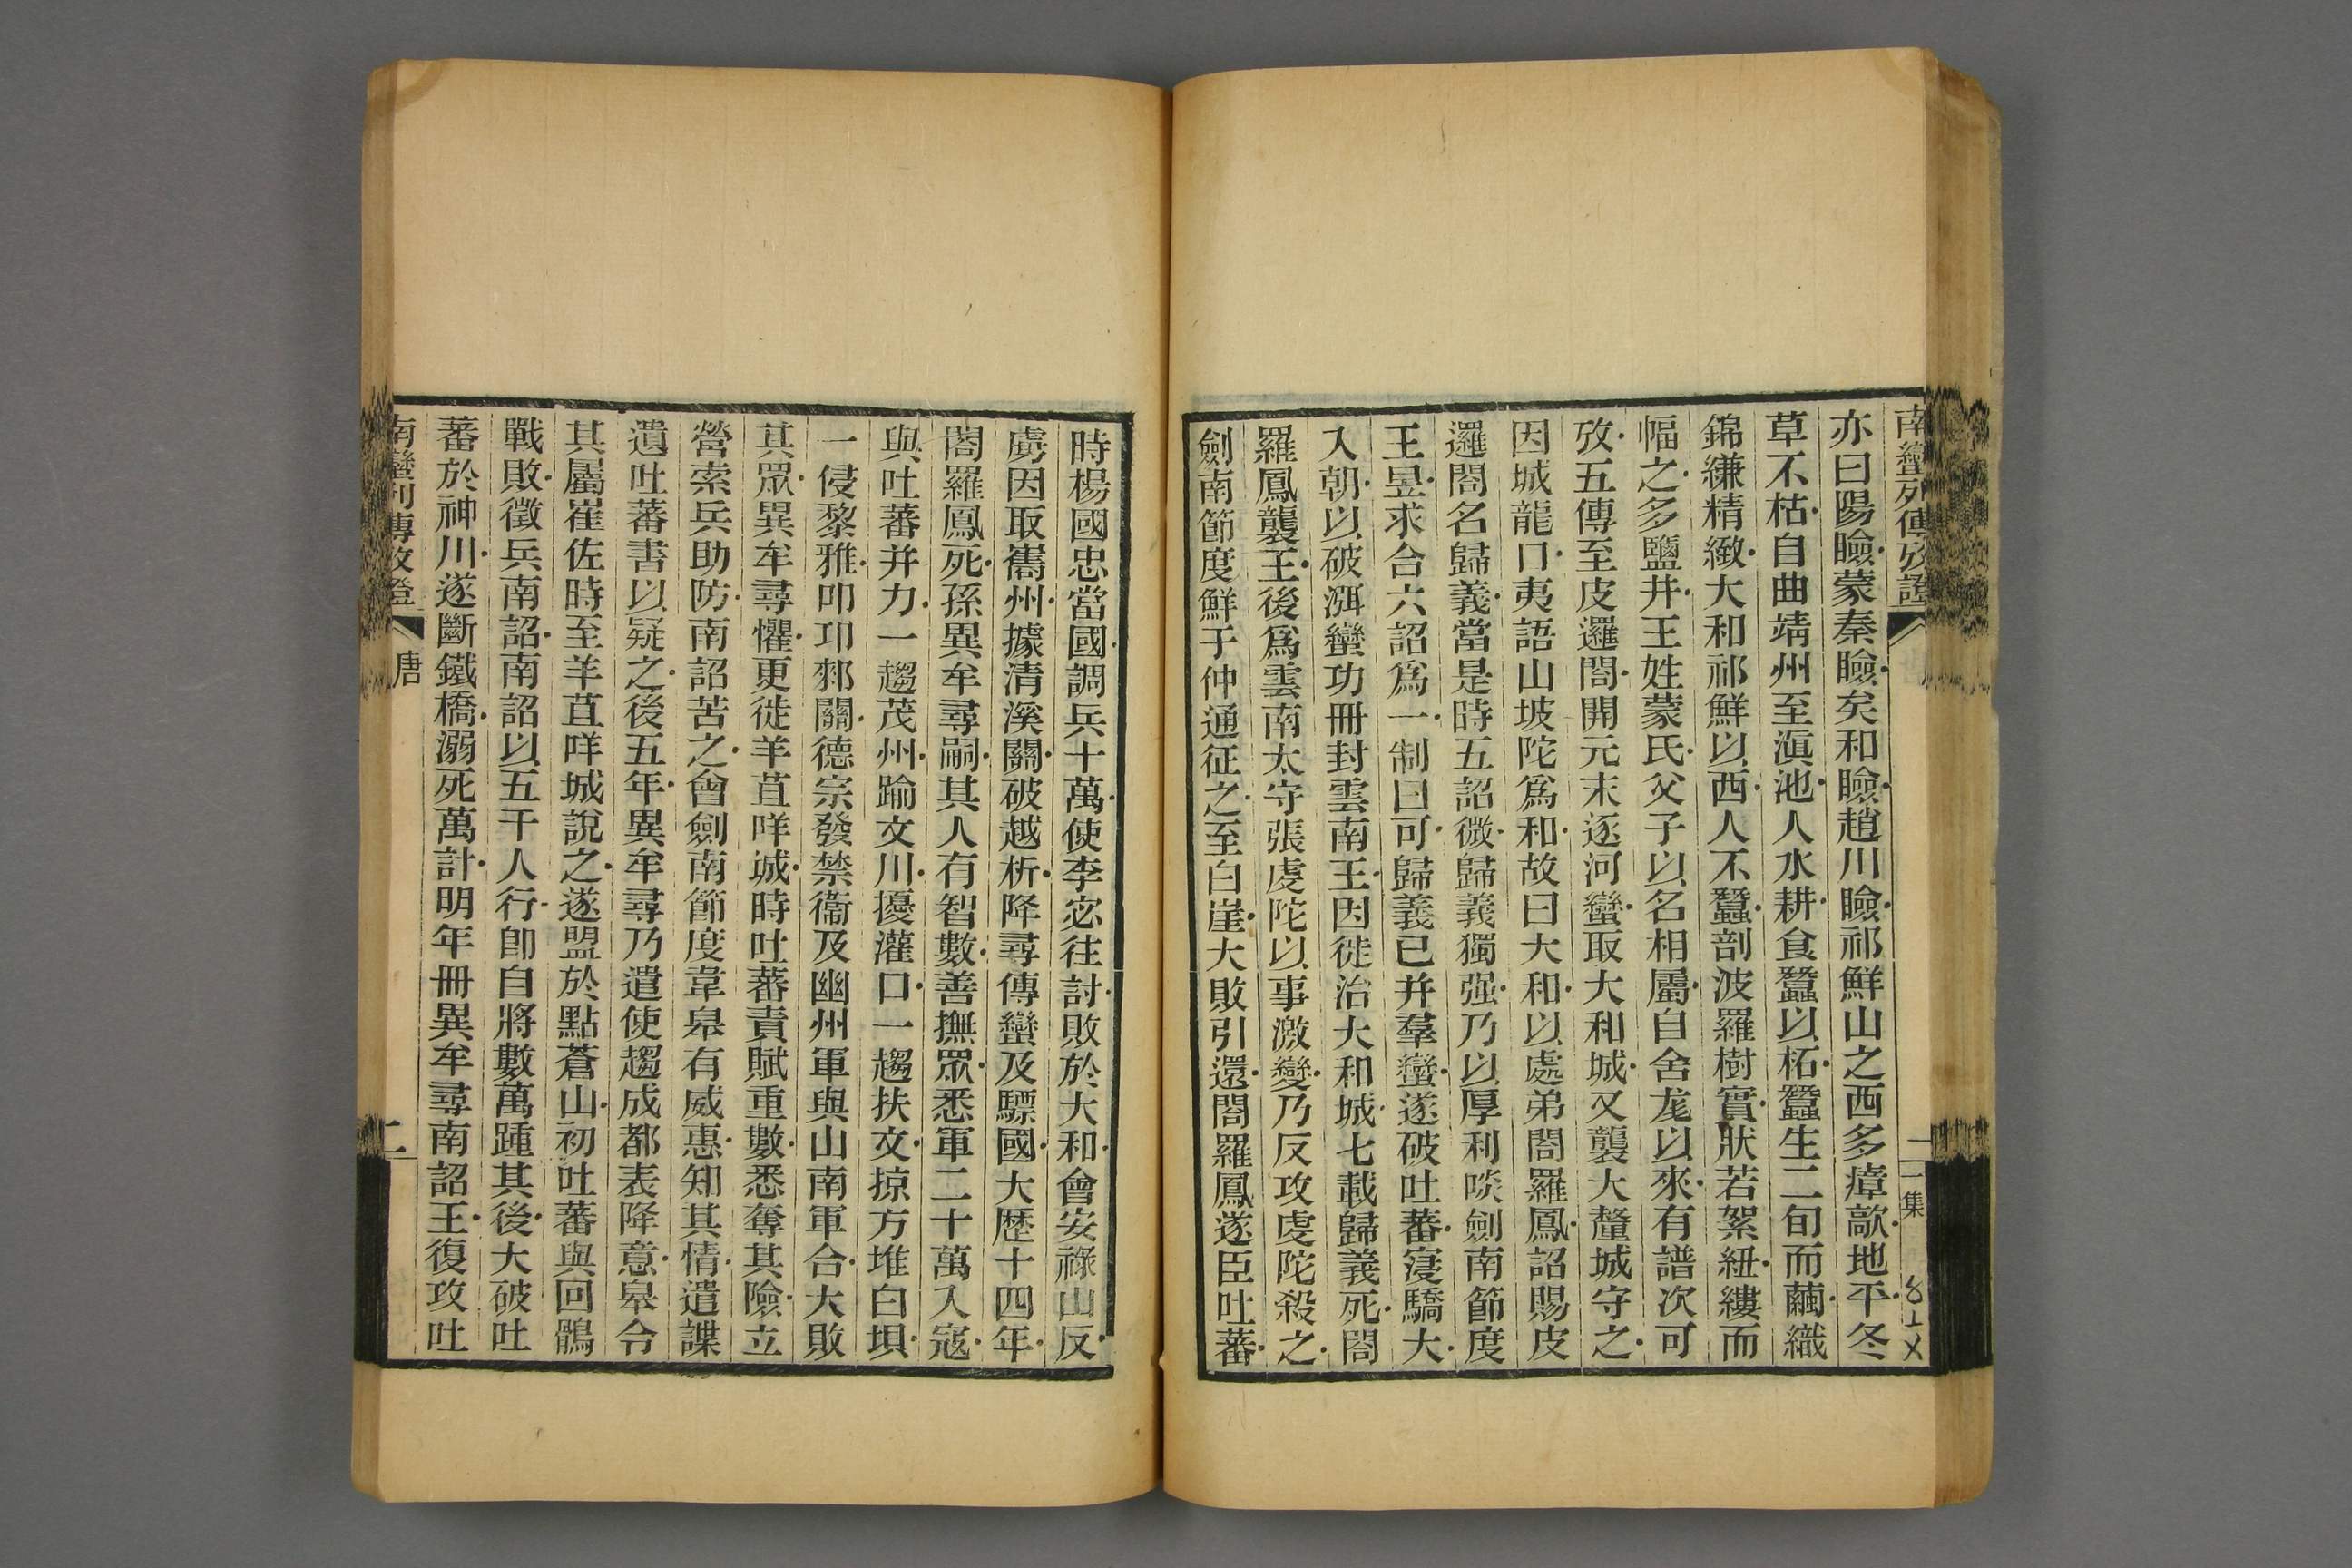 南蠻列傳攷證
一
二集
亦曰陽瞼蒙秦瞼矣和瞼趙川瞼祁鮮山之西多瘴歊地平冬
草不枯自曲靖州至滇池人水耕食蠶以柘蠶生二旬而繭織
錦縑精緻大和祁鮮以西人不蠶剖波羅樹實狀若絮紐縷而
幅之多鹽井王姓蒙氏父子以名相屬自舍尨以來有譜次可
攷五傳至皮邏閤開元末逐河蠻取大和城又襲大釐城守之
因城龍口夷語山坡陀爲和故曰大和以處弟閤羅鳳詔賜皮
邏閤名歸義當是時五詔微歸義獨强乃以厚利啖劍南節度
王昱求合六詔爲一制曰可歸義已并羣蠻遂破吐蕃寖驕大
入朝以破渳蠻功冊封雲南王因徙治大和城七載歸義死閤
羅鳳襲王後爲雲南太守張虔陀以事激變乃反攻虔陀殺之
劍南節度鮮于仲通征之至白崖大敗引還閤羅鳳遂臣吐蕃
時楊國忠當國調兵十萬使李宓往討敗於大和會安祿山反
虜因取巂州據清溪關破越析降尋傳蠻及驃國大歷十四年
閤羅鳳死孫異牟尋嗣其人有智數善撫眾悉軍二十萬入寇
與吐蕃并力一趨茂州踰文川擾灌口一趨扶文掠方堆白垻
一侵黎雅叩卭郲關德宗發禁衞及幽州軍與山南軍合大敗
其眾異牟尋懼更徙羊苴咩城時吐蕃責賦重數悉奪其險立
營索兵助防南詔苦之會劍南節度韋皋有威惠知其情遣諜
遺吐蕃書以疑之後五年異牟尋乃遣使趨成都表降意皋令
其屬崔佐時至羊苴咩城說之遂盟於點蒼山初吐蕃與回鶻
戰敗徵兵南詔南詔以五千人行卽自將數萬踵其後大破吐
蕃於神川遂斷鐵橋溺死萬計明年冊異牟尋南詔王復攻吐
南蠻列傳攷證
唐
二